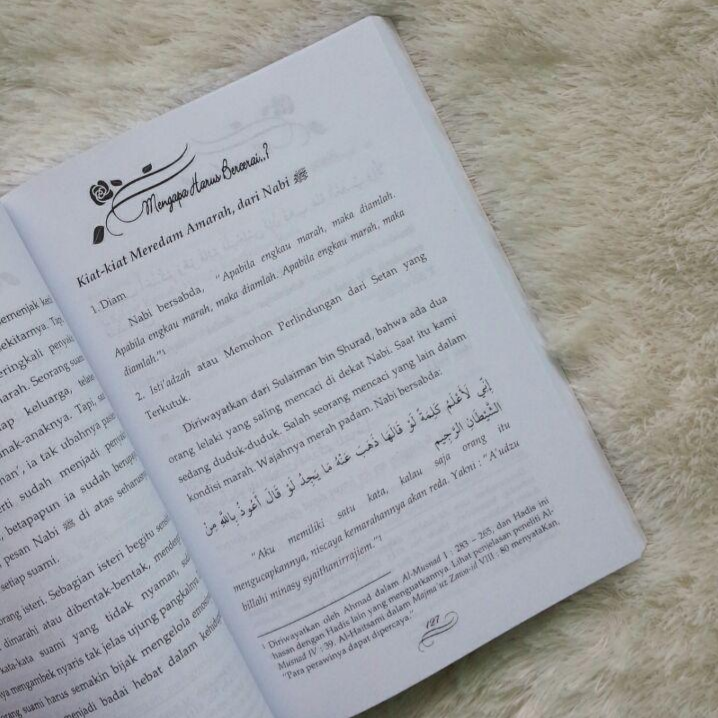 emenjak
ekitarnya. Tap
eringkali penyak
narah. Seorang suami
tap keluarga,
nak-anaknya. Tapi, su
an', ia tak ubahnya pasar
erti sudah menjadi penyak
, betapapun ia sudah berap
pesan Nabi ﷺ di atas seharus
setiap suami.
orang isteri. Sebagian isteri begitu sens
dimarahi atau dibentak-bentak, menden
kata-kata suami yang tidak nyaman, sud
nya mengambek nyaris tak jelas ujung pangkalny
orang suami harus semakin bijak mengelola emosi
menjadi badai hebat dalam kehidu
Mengapa Harus Bercerai..?
Kiat-kiat Meredam Amarah, dari Nabi ﷺ
1. Diam
Nabi bersabda, "Apabila engkau marah, maka diamlah.
Apabila engkau marah, maka diamlah. Apabila engkau marah, maka
diamlah."¹
2. Isti'adzah atau Memohon Perlindungan dari Setan yang
Terkutuk.
Diriwayatkan dari Sulaiman bin Shurad, bahwa ada dua
orang lelaki yang saling mencaci di dekat Nabi. Saat itu kami
sedang duduk-duduk. Salah seorang mencaci yang lain dalam
kondisi marah. Wajahnya merah padam. Nabi bersabda:
إِنِّي لَأَعْلَمُ كَلِمَةً لَوْ قَالَهَا ذَهَبَ عَنْهُ مَا يَجِدُ لَوْ قَالَ أَعُوذُ بِاللَّهِ مِنْ
الشَّيْطَانِ الرَّجِيمِ
"Aku memiliki satu kata, kalau saja orang itu
mengucapkannya, niscaya kemarahannya akan reda. Yakni : "A'udzu
billahi minasy syaithanirrajiem."¹
¹ Diriwayatkan oleh Ahmad dalam Al-Musnad I : 283 – 265, dan Hadis ini
hasan dengan Hadis lain yang menguatkannya. Lihat penjelasan peneliti Al-
Musnad IV : 39. Al-Haitsami dalam Majma' uz Zawa-id VIII : 80 menyataKan,
"Para perawinya dapat dipercaya."
127